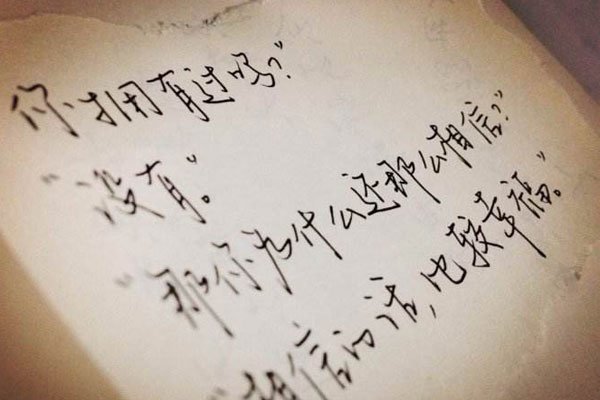 你拥有过吗?"
"没有。"
"那你为什么还那么相信?"
"相信的话,比较幸福。"